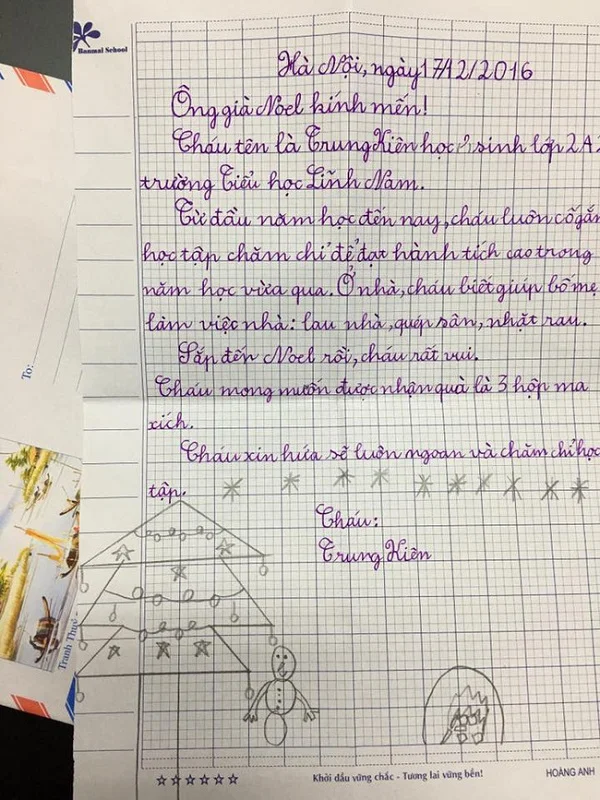 Banmai School
Hà Nội, ngày 17/12/2016
Ông già Noel kính mến!
Cháu tên là Trung Kiên học sinh lớp 2A2
trường Tiểu học Lĩnh Nam.
Từ đầu năm học đến nay, cháu luôn cố gắn
học tập chăm chỉ để đạt hành tích cao trong
năm học vừa qua. Ở nhà, cháu biết giúp bố mẹ
làm việc nhà: lau nhà, quép sân, nhặt rau.
Sắp đến Noel rồi, cháu rất vui.
Cháu mong muốn được nhận quà là 3 hộp ma
xích.
Cháu xin hứa sẽ luôn ngoan và chăm chỉ học
tập.
Cháu:
Trung Kiên
To:
Tranh Thuỷ
Khởi đầu vững chắc - Tương lai vững bền!
HOÀNG ANH